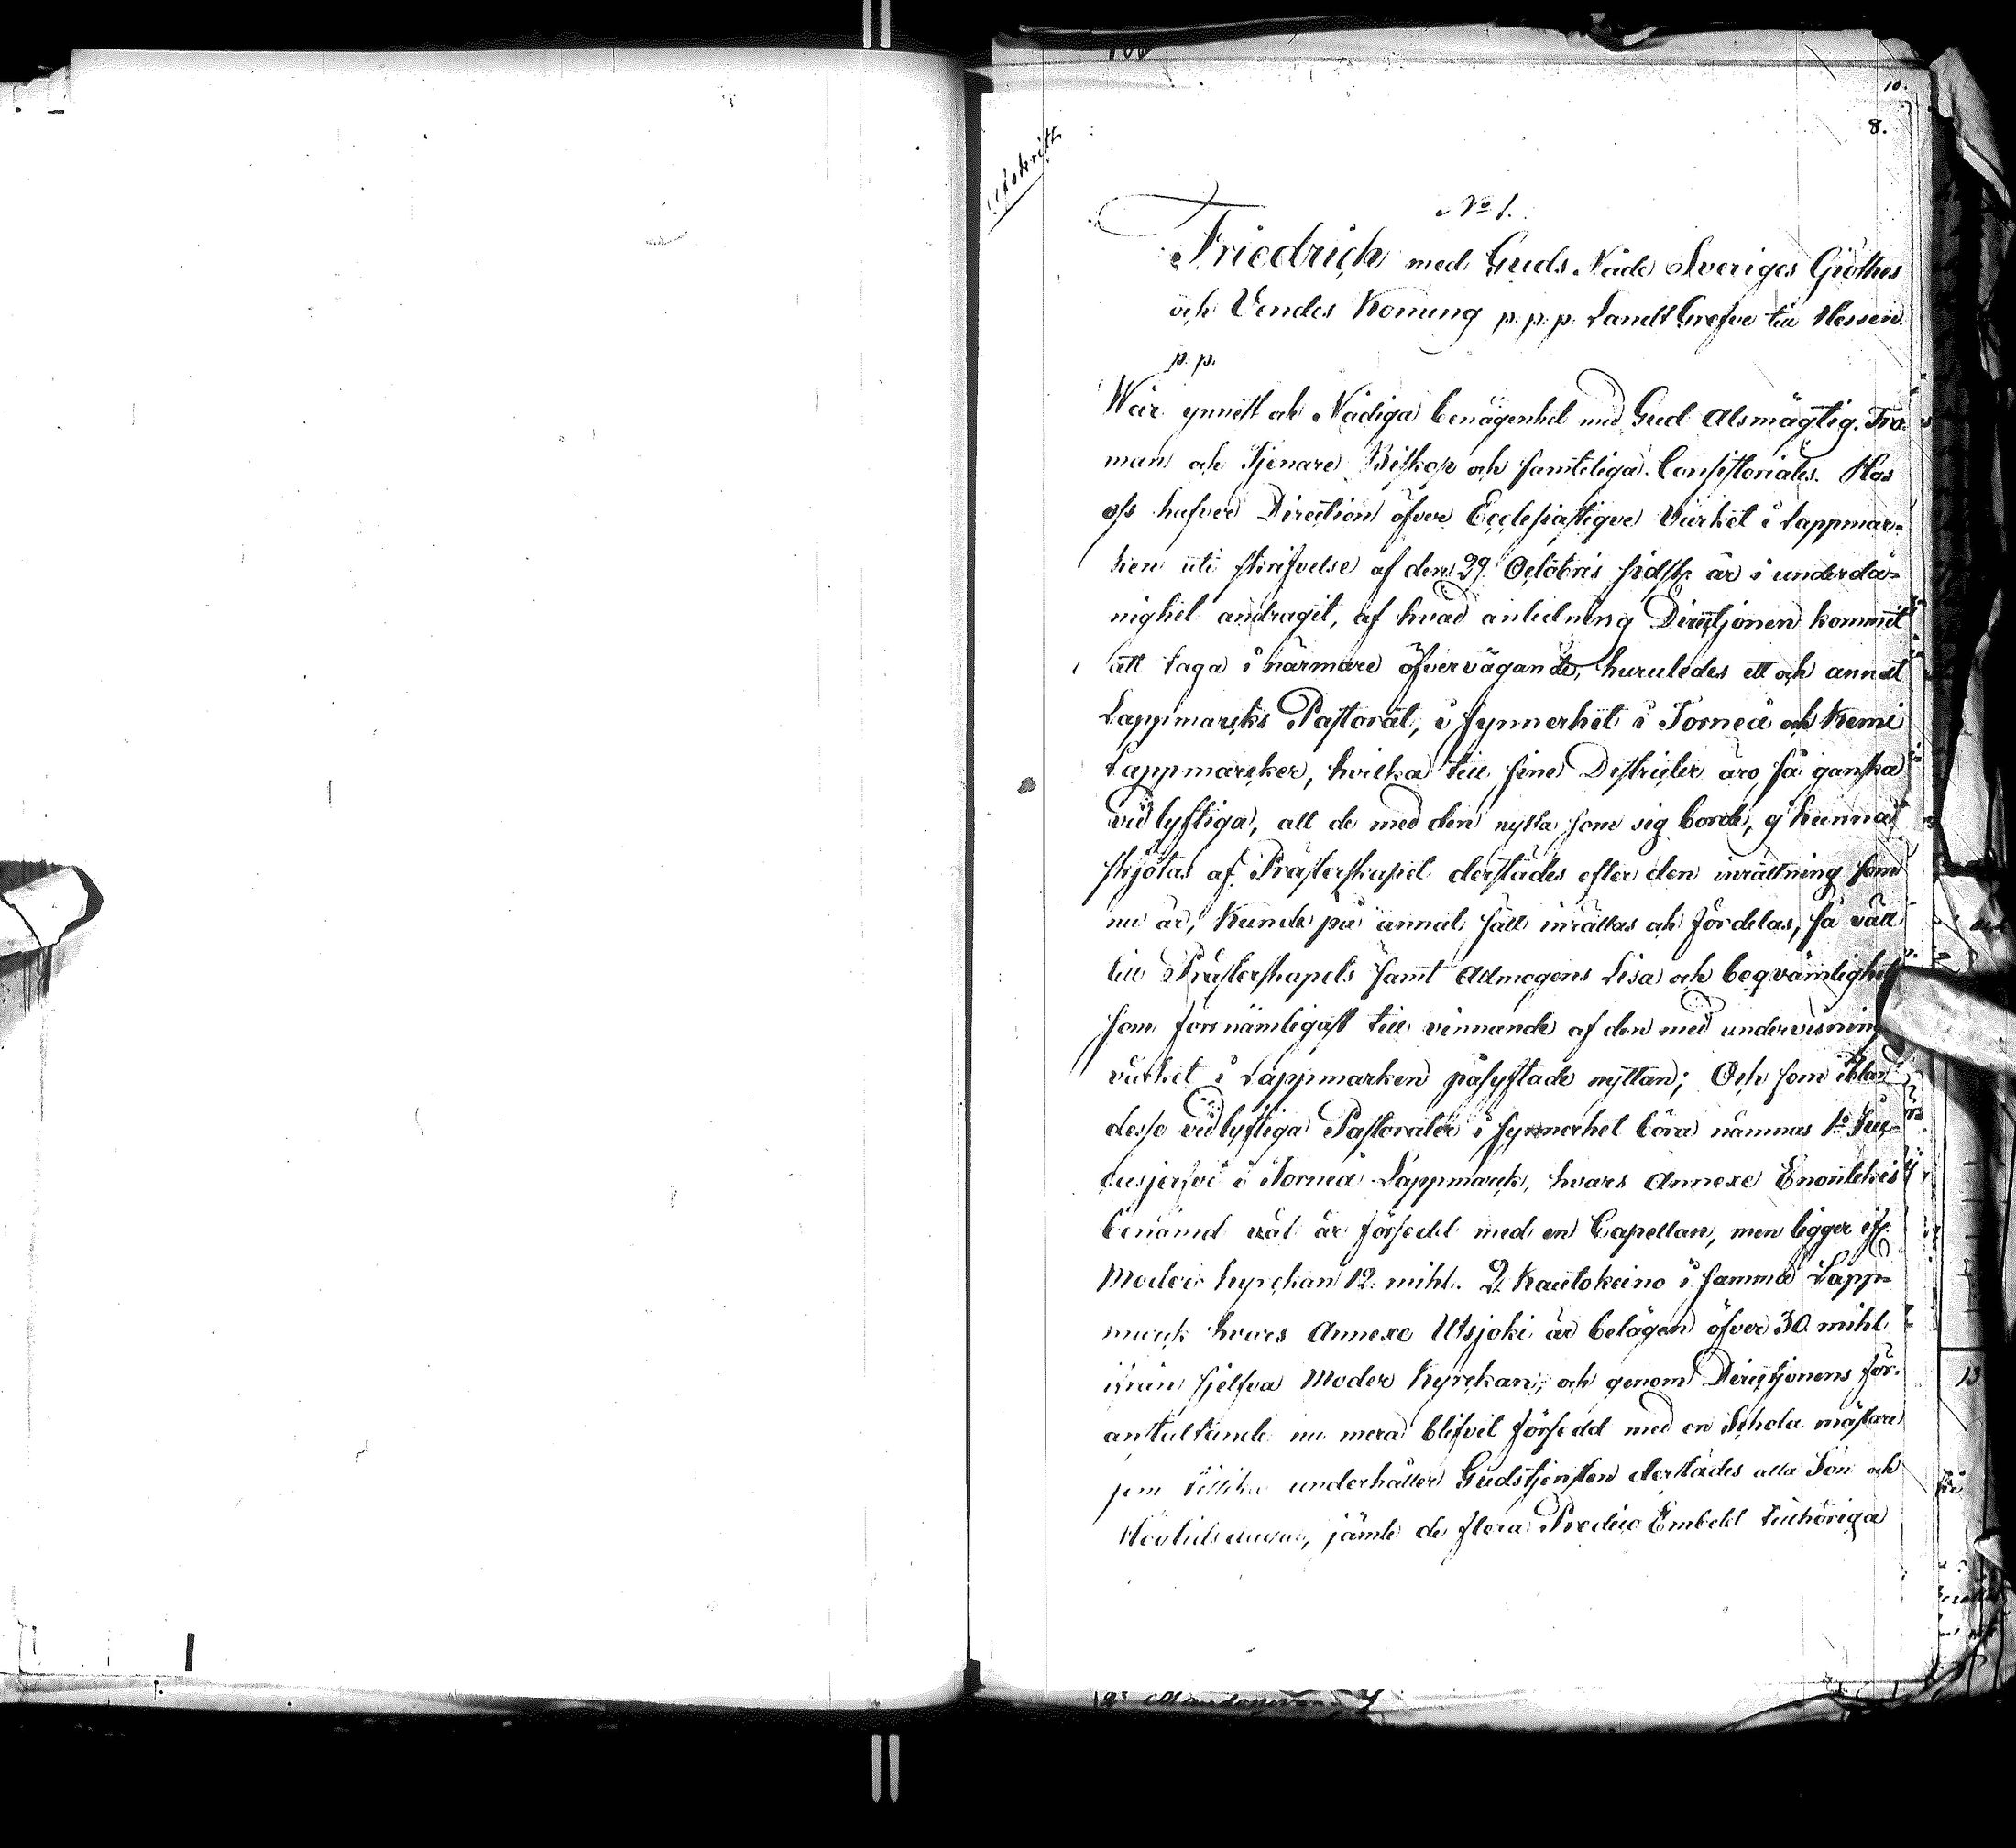 10.
8.
Afskrift
No 1.
Friedrich med Guds Nåde Sveriges Giöthes
och Vendes Konung p. p. p. Landt Grefve till Hessen
p. p.
Wår ynnest och Nådiga benägenhet med Gud Alsmägtig. Tro-
man och Tjenare Biskop och samteliga Consistoriales. Hos
oss hafver Direction öfver Ecclesiastiqve Värket i Lappmar-
ken uti skrifvelse af den 29 Octobris sidstl. år i underdå-
nighet andragit, af hvad anledning Directjonen kommit
att taga i närmare öfvervägande, huruledes ett och annat
Lappmarcks Pastorat, i synnerhet i Torneå och Kemi
Lappmarcker, hvilka till sine Districter äro så ganska
vidlyftiga, att de med den nytta som sig borde, ej kunnat
skjötas af Prästerskapet derstädes efter den inrättning som
nu är, kunde på annat sätt inrättas och fördelas, så väll
till Prästerskapets samt Allmogens Lisa och beqvämlighet
som förnämligast till vinnande af den med undervisnings
värket i Lappmarken påsyftade nyttan; Och som ibland
desse vidlyftiga Pastorater i synnerhet böra nämnas 1o Juc-
cusjerfvi i Torneå Lappmarck, hvars Annexe Enontekis
benämd väl är försedd med en Capellan, men ligger ifr.
Moder kyrckan 12 mihl. 2. Kautokeino i samma Lapp-
marck hvars Annexe Utsjoki är belägen öfver 30 mihl
ifrån sjelfva Moder Kyrckan, och genom Directjonens för-
anstaltande nu mera blifvit försedd med en Schola mästare
som tillika underhåller Gudstjensten derstädes alla Sön och
Högtidsdagar, jämte de flera Predico Embetet tillhöriga